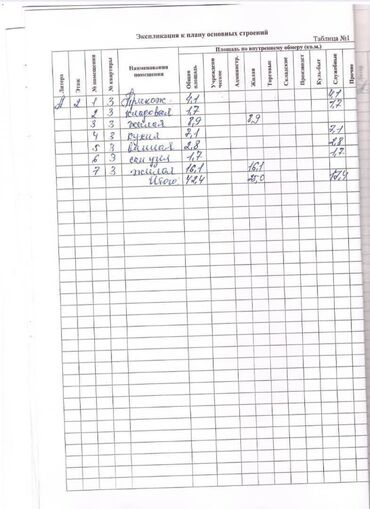 Экспликация к плану основных строений
Таблица №1
Площадь по внутреннему обмеру (кв.м.)
Литера Этаж № помещения № квартиры Наименования помещения Общая площадь Учрежден ческие Администр. Жилая Торговые Складские Производст Культ-быт Служебные Прочие
А 2 1 3 Прихож. 4,1 4,1
2 3 кладовая 1,7 1,7
3 3 жилая 8,9 8,9
4 3 кухня 7,1 7,1
5 3 ванная 2,8 2,8
6 3 сан узел 1,7 1,7
7 3 жилая 16,1 16,1
Итого: 42,4 25,0 17,4